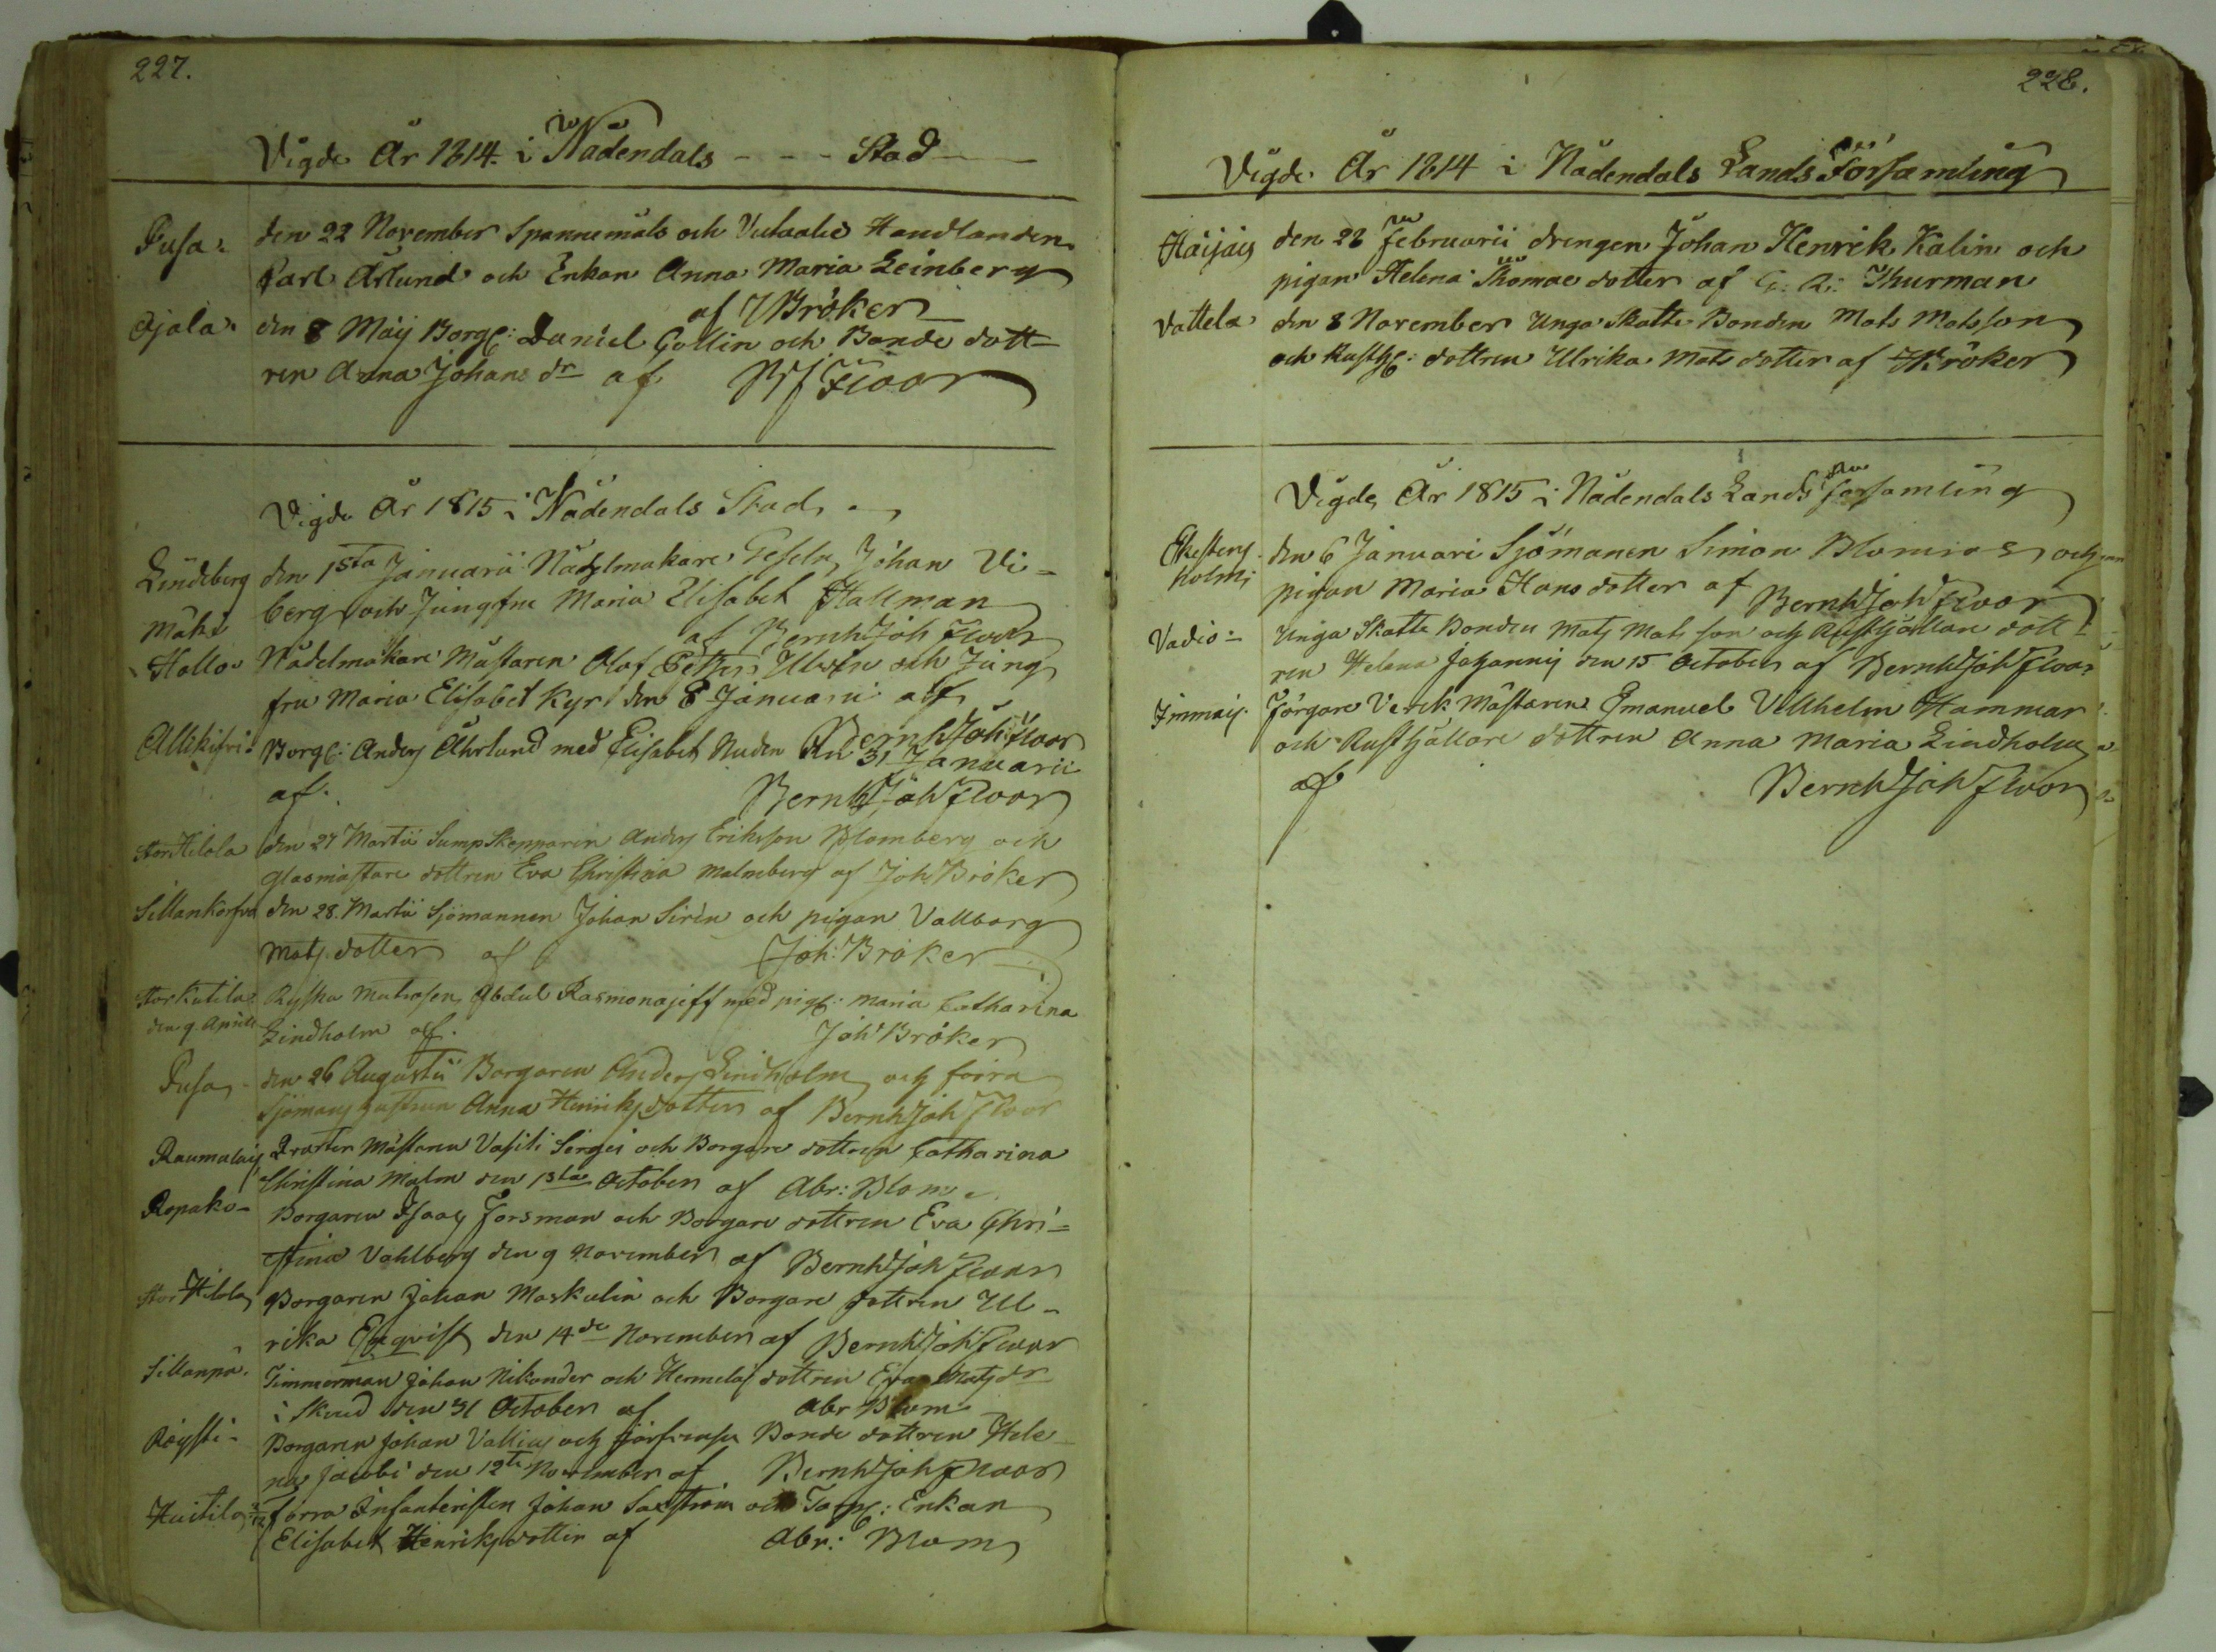 227.
Vigde År 1814. i Nådendals - - - Stad
Pusa: den 22 November Spannemåls och Handlanden
Carl Årlund och Enkan Anna Maria Leinberg
af J Bröker
Ajola. den 8 Maij Borg: Daniel Gollin och Bonde dott-
ren Anna Johans dr af BJ Floor
Vigde År 1815 i Nådendals Stad
Lindeberg den 1sta Januarii Nåhlmakare Geseln Johan Vi-
berg och Jungfru Maria Elisabet Hallman
mäki af Bernh Joh Floor
Hollo Nådelmakare Mästaren Olof Petter och Jung
fru Maria Elisabet Kyr den 8 Januarii af
Bernh Joh Floor
Borg: Anders Åhrlund med Elisabet Nuden den 31 Januarii
af. Bernh Joh Floor
Stor Hilola den 27 Martii Sump Skepparen Anders Eriksson Blomberg och
Glasmästare dottren Eva Christina Malmberg af Joh Bröker
Sillankorfva den 28. Martii Sjömannen Johan Sirén och pigan Vallborg
Mats dotter af Joh: Bröker
Stor Kutila: Ryska Matrosen Abdul Rasmonajeff med pig: Maria Catharina
den 9 Aprill Lindholm af. Joh: Bröker
Pusa - den 26 Augustii Borgaren Anders Lindholm och förra
Sjömans hustrun Anna Henriks dotter af Bernh Joh Floor
Raumalais Mästaren Vasili Sergei och Borgare dottren Catharina
Christina Malm den 1sta October af Abr: Blom
Ropako- Borgaren Isaac Forsman och Borgare dottren Eva Chri-
stina Vahlberg den 9 November af Bernh Joh Floor
Stor Hilola Borgaren Johan Maskulin och Borgare dottren Ul-
rika Engvist den 14de November af Bernh Joh Floor
Sillanpä. Timmerman Johan Nikander och dottren Eva Mats dr
i den 31 October af Abr Blom
Röysti- Borgaren Johan Vallius och Bonde dottren Hele-
na Jacobi den 12te November af Bernh Joh Floor
Huitila förra Infanteristen Johan Saxström och Torp: Enkan
Elisabet Henriks dotter af Abr: Blom
228.
Vigde År 1814 i Nådendals Lands Församling
Häijäis den 28 Februarii drengen Johan Henrik Kalin och
pigan Helena Thomae dotter af G: R: Thurman
Vattela den 8 November Unga Skatte Bonden Mats Matsson
och Rusth: dottren Ulrika Mats dotter af J Bröker
Vigde År 1815 i Nådendals Lands församling
den 6 Januari Sjömanen Simon Blomroos och
holm; pigan Maria Hans dotter af Bernh Joh Floor
Vadio: Unga Skatte Bonden Mats Mats son och Rusthållare dott-
ren Helena Johannis den 15 October af Bernh Joh Floor
Immais. Färgare Verk Mästaren Emanuel Vilhelm Hammar
och Rusthållare dottren Anna Maria Lindholm
af Bernh Joh Floor